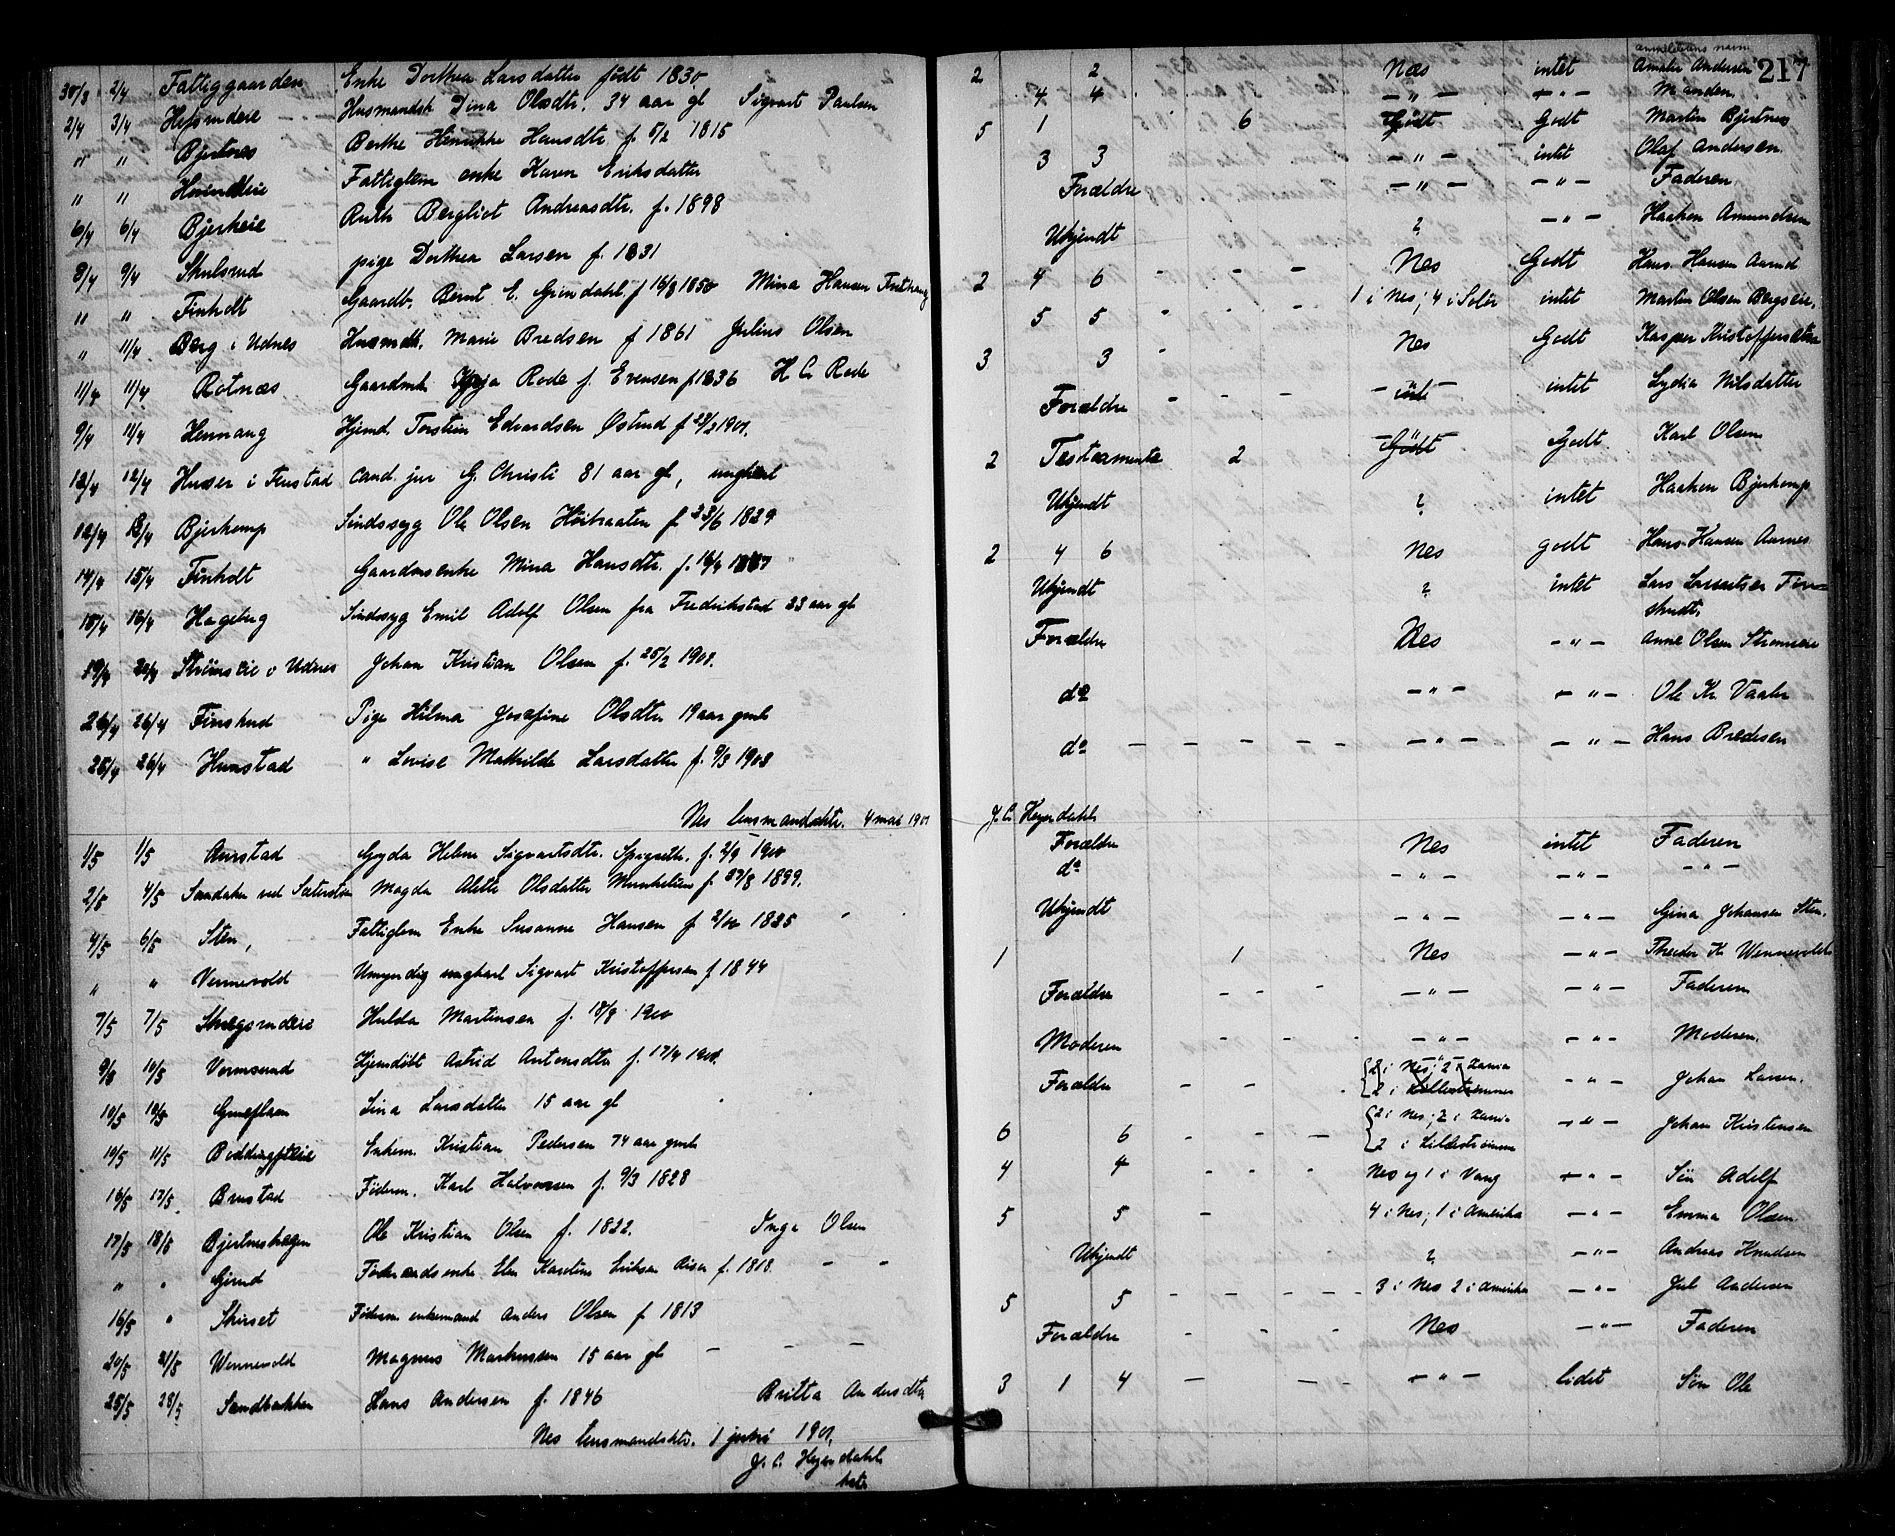 anmelderens navn
217
30/3 2/4 Fattiggaarden Enke Dorthea Larsdatter født 1830. 2 2 Næs intet Amalie Andersen
2/4 3/4 Husmandsk Dina Olsdtr. 34 aar gl Sigvart Paulsen 4 4 — " — — " — Manden
" " Bjertnes Berthe Henrikke Hansdtr f. 5/2 1815 5 1 6 Godt Martin Bjertnes
" " Fattiglem enke Karen Eriksdatter 3 3 — " — intet Olaf Andersen
6/4 6/4 Bjerkeie Ruth Bergliot Andreasdtr. f. 1898 Forældre — " — — " — Faderen
8/4 9/4 Skulsrud pige Dorthea Larsen f. 1831 Ukjendt ? — " — Haaken Amundsen
" " Finholt Gaardb. Bernt E. Grindahl f 16/8 1850 Mina Hansen 2 4 6 - - - Nes Godt Hans Hansen Aarnes
" 11/4 Berg i Udnes Husmdk. Marie Bredsen f 1861 Julius Olsen 5 5 - - - 1 i Nes; 4 i Solør intet Martin Olsen Bergseie.
11/4 11/4 Rotnæs Gaardmk. Rode f. Evensen f 1836 H C Rode 3 3 - Nes Godt Kasper Kristoffersen
9/4 11/4 Hennang Hjemd. Torstein Edvardsen Østrud f 22/2 1901. Forældre - - - — " — intet Lydia Nilsdatter
12/4 12/4 Huser i Funstad cand. jur G. Christi 81 aar gl, ungkarl 2 Testamente 2 — " — Godt Karl Olsen
12/4 13/4 Bjerkemp Sindssyg Ole Olsen Høibraaten f 23/6 1829 Ukjendt ? intet Haaken Bjerkemp
14/4 15/4 Finholt Gaardmsenke Mina Hansdtr. f. 16/4 2 4 6 Nes godt Hans Hansen Aarnes
15/4 16/4 Hageberg Sindssyg Emil Adolf Olsen fra Fredrikstad 33 aar gl Ukjendt ? intet Lars Lauritsen Finskudt.
19/4 20/4 Strømseie i Udnes Johan Kristian Olsen f. 25/2 1901. Forældre Nes — " — Anne Olsen Strømseie
26/4 26/4 Finskud Pige Hilma Josefine Olsdtr 19 aar gml do — " — — " — Ole Kr. Vaaler
25/4 26/4 Hunstad " Lovise Mathilde Larsdatter f. 9/3 1901 do — — — — — — " — — " — Hans Bredesen
Nes lensmandsktr. 4 mai 1901 J. C. Heyerdahl
1/5 1/5 Aurstad Gyda Helene Sigvartsdtr. f. 2/9 1900 Forældre Nes intet Faderen
2/5 4/5 Sandaker ved Sæterstøen Magda Alette Olsdatter f. 27/8 1899. do — " — — " — — " —
4/5 6/5 Sten, Fattiglem Enke Susanne Hansen f 2/10 1825 Ukjendt — " — — " — Gina Johansen Sten.
" " Vennevold Umyndig ungkarl Sigvart Kristoffersen f 1844 1 1 Nes — " — Theodor K. Wennevold
7/5 7/5 Hulda Martinsen f. 18/8 1900 Forældre - - - — " — — " — Faderen
9/5 10/5 Vormsund Hjemdøbt Astrid Antonsdtr f. 17/4 1901. Moderen - - — " — — " — Moderen.
10/5 10/5 Lina Larsdatter 15 aar gl Forældre - - — " — Johan Larsen.
10/5 11/5 Enkem. Kristian Pedersen 74 aar gml 6 6 - - — 2 i Nes; 2 i 2 i Lillestrømmen — " — Johan Kristensen
16/5 17/5 Brustad Føderm. Karl Halvorsen f. 9/3 1828 4 4 - - Nes og 1 i Vang — " — Søn Adolf
17/5 18/5 Bjertneshagen Ole Kristian Olsen f. 1822. Inga Olsen 5 5 - 4 i Nes; 1 i Amerika — " — Emma Olsen
" " Føderaadsenke Elen Karoline Eriksen f. 1818. Ukjendt ? — " — Andreas Knudsen
16/5 " Skirset Føderm enkemand Anders Olsen f 1813 5 5 - - - - 3 i Nes 2 i Amerika — " — Jul Andersen
20/5 21/5 Wennevold Magnus Markussen 15 aar gl Forældre - - - Nes — " — Faderen
25/5 28/5 Sandbakken Hans Andersen f. 1846 Britta Andersdtr 3 1 4 — - — " — lidet Søn Ole
Nes lensmandsktr. 1 juni 1901.
J. C. Heyerdahl